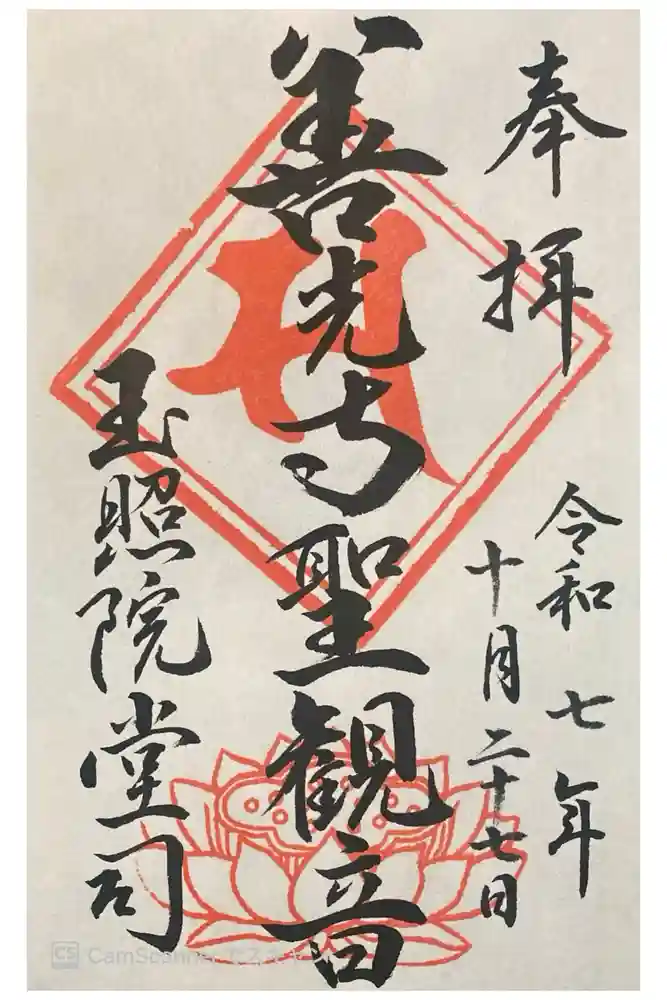 奉拝
令和七年
十月二十七日
善光寺聖観音
玉照院堂司
CS CamScanner でスキャン